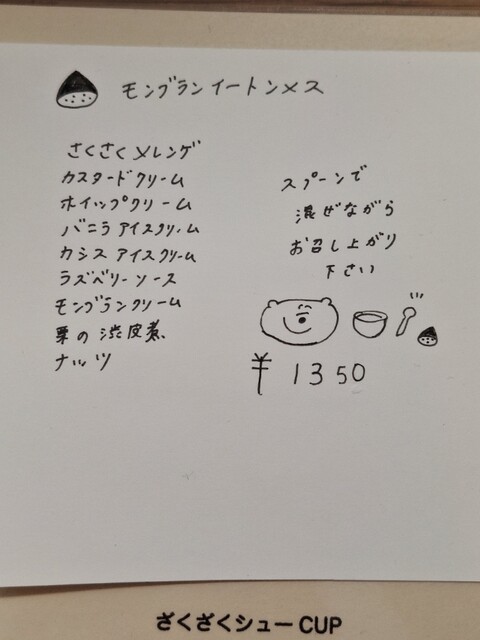 モンブランイートンメス
さくさくメレンゲ
カスタードクリーム
ホイップクリーム
バニラアイスクリーム
カシスアイスクリーム
ラズベリーソース
モンブランクリーム
栗の渋皮煮
ナッツ
スプーンで
混ぜながら
お召し上がり
下さい
¥1350
ざくざくシューCUP